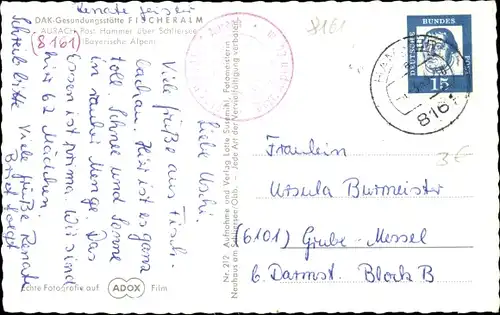 Renate Leiser
DAK-Gesundungsstätte FISCHERALM
AURACH, Post: Hammer über Schliersee
(8161) (Bayerische Alpen)
8161
DEUTSCHE
BUNDES
POST
15
HAMMER
8161
3€
Liebe Uschi,
Viele Grüße aus Fisch-
bachau. Hier ist es ganz
toll. Schnee und Sonne
in rauher Menge. Das
Essen ist prima. Wir sind
hier 62 Mädchen.
Schreib bitte Viele Grüße Renate
Brief folgt
Nr. 212 Aufnahme und Verlag Lotte Susemihl, Fotomeisterin
Neuhaus am Schliersee/Obb. — Jede Art der Vervielfältigung verboten
Fräulein
Ursula Burmeister
(6101) Grube-Messel
b. Darmst. Block B
Echte Fotografie auf ADOX Film